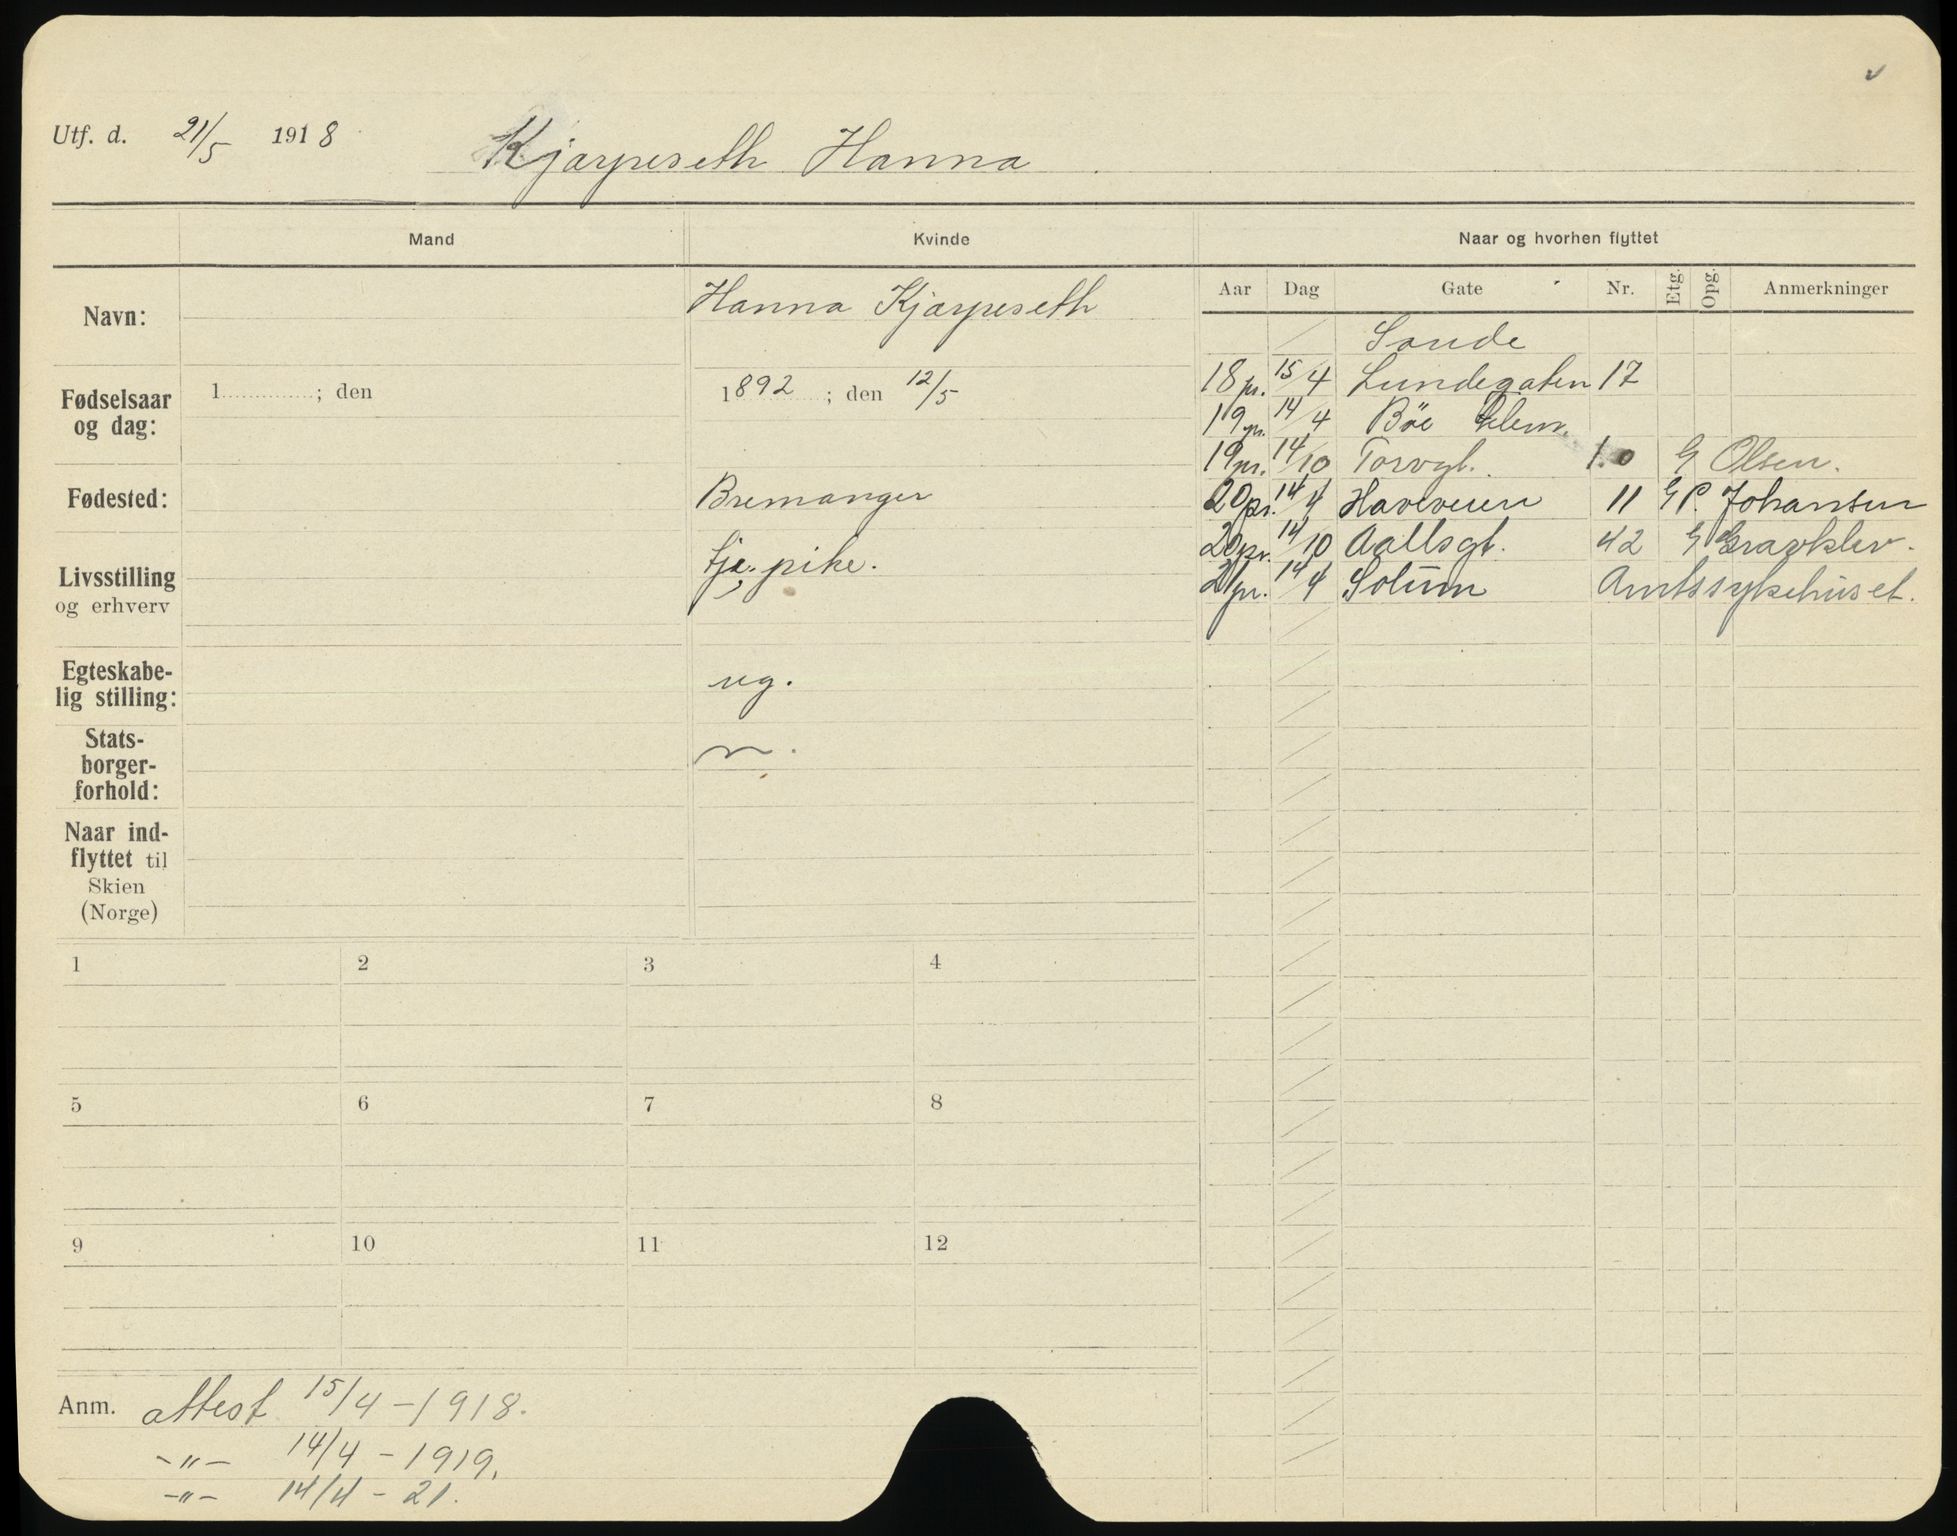 Utf. d. 21/5 1918 Kjarpeseth Hanna
Mand Kvinde Naar og hvorhen flyttet
Aar Dag Gate Nr. Etg. Opg. Anmerkninger
Navn: Hanna Kjarpeseth
Sande
Fødselsaar og dag: 1 ; den 1892 ; den 12/5
18 pr. 15/4 Lundegaten 17
19 pr. 14/4 Bøe
19 pr. 14/10 Torvgt. 10 G Olsen.
Fødested: Bremanger
20 pr. 14/4 Haveveien 11 G P. Johansen
20 pr. 14/10 Aallsgt. 42 G Gravklev.
Livsstilling og erhverv tje. pike.
21 pr. 14/4 Solum Amtssykehuset.
Egteskabe-
lig stilling: ug.
Stats-
borger-
forhold: n.
Naar ind-
flyttet til
Skien
(Norge)
1 2 3 4
5 6 7 8
9 10 11 12
Anm. attest 15/4 - 1918.
-"- 14/4 - 1919.
-"- 14/4 - 21.